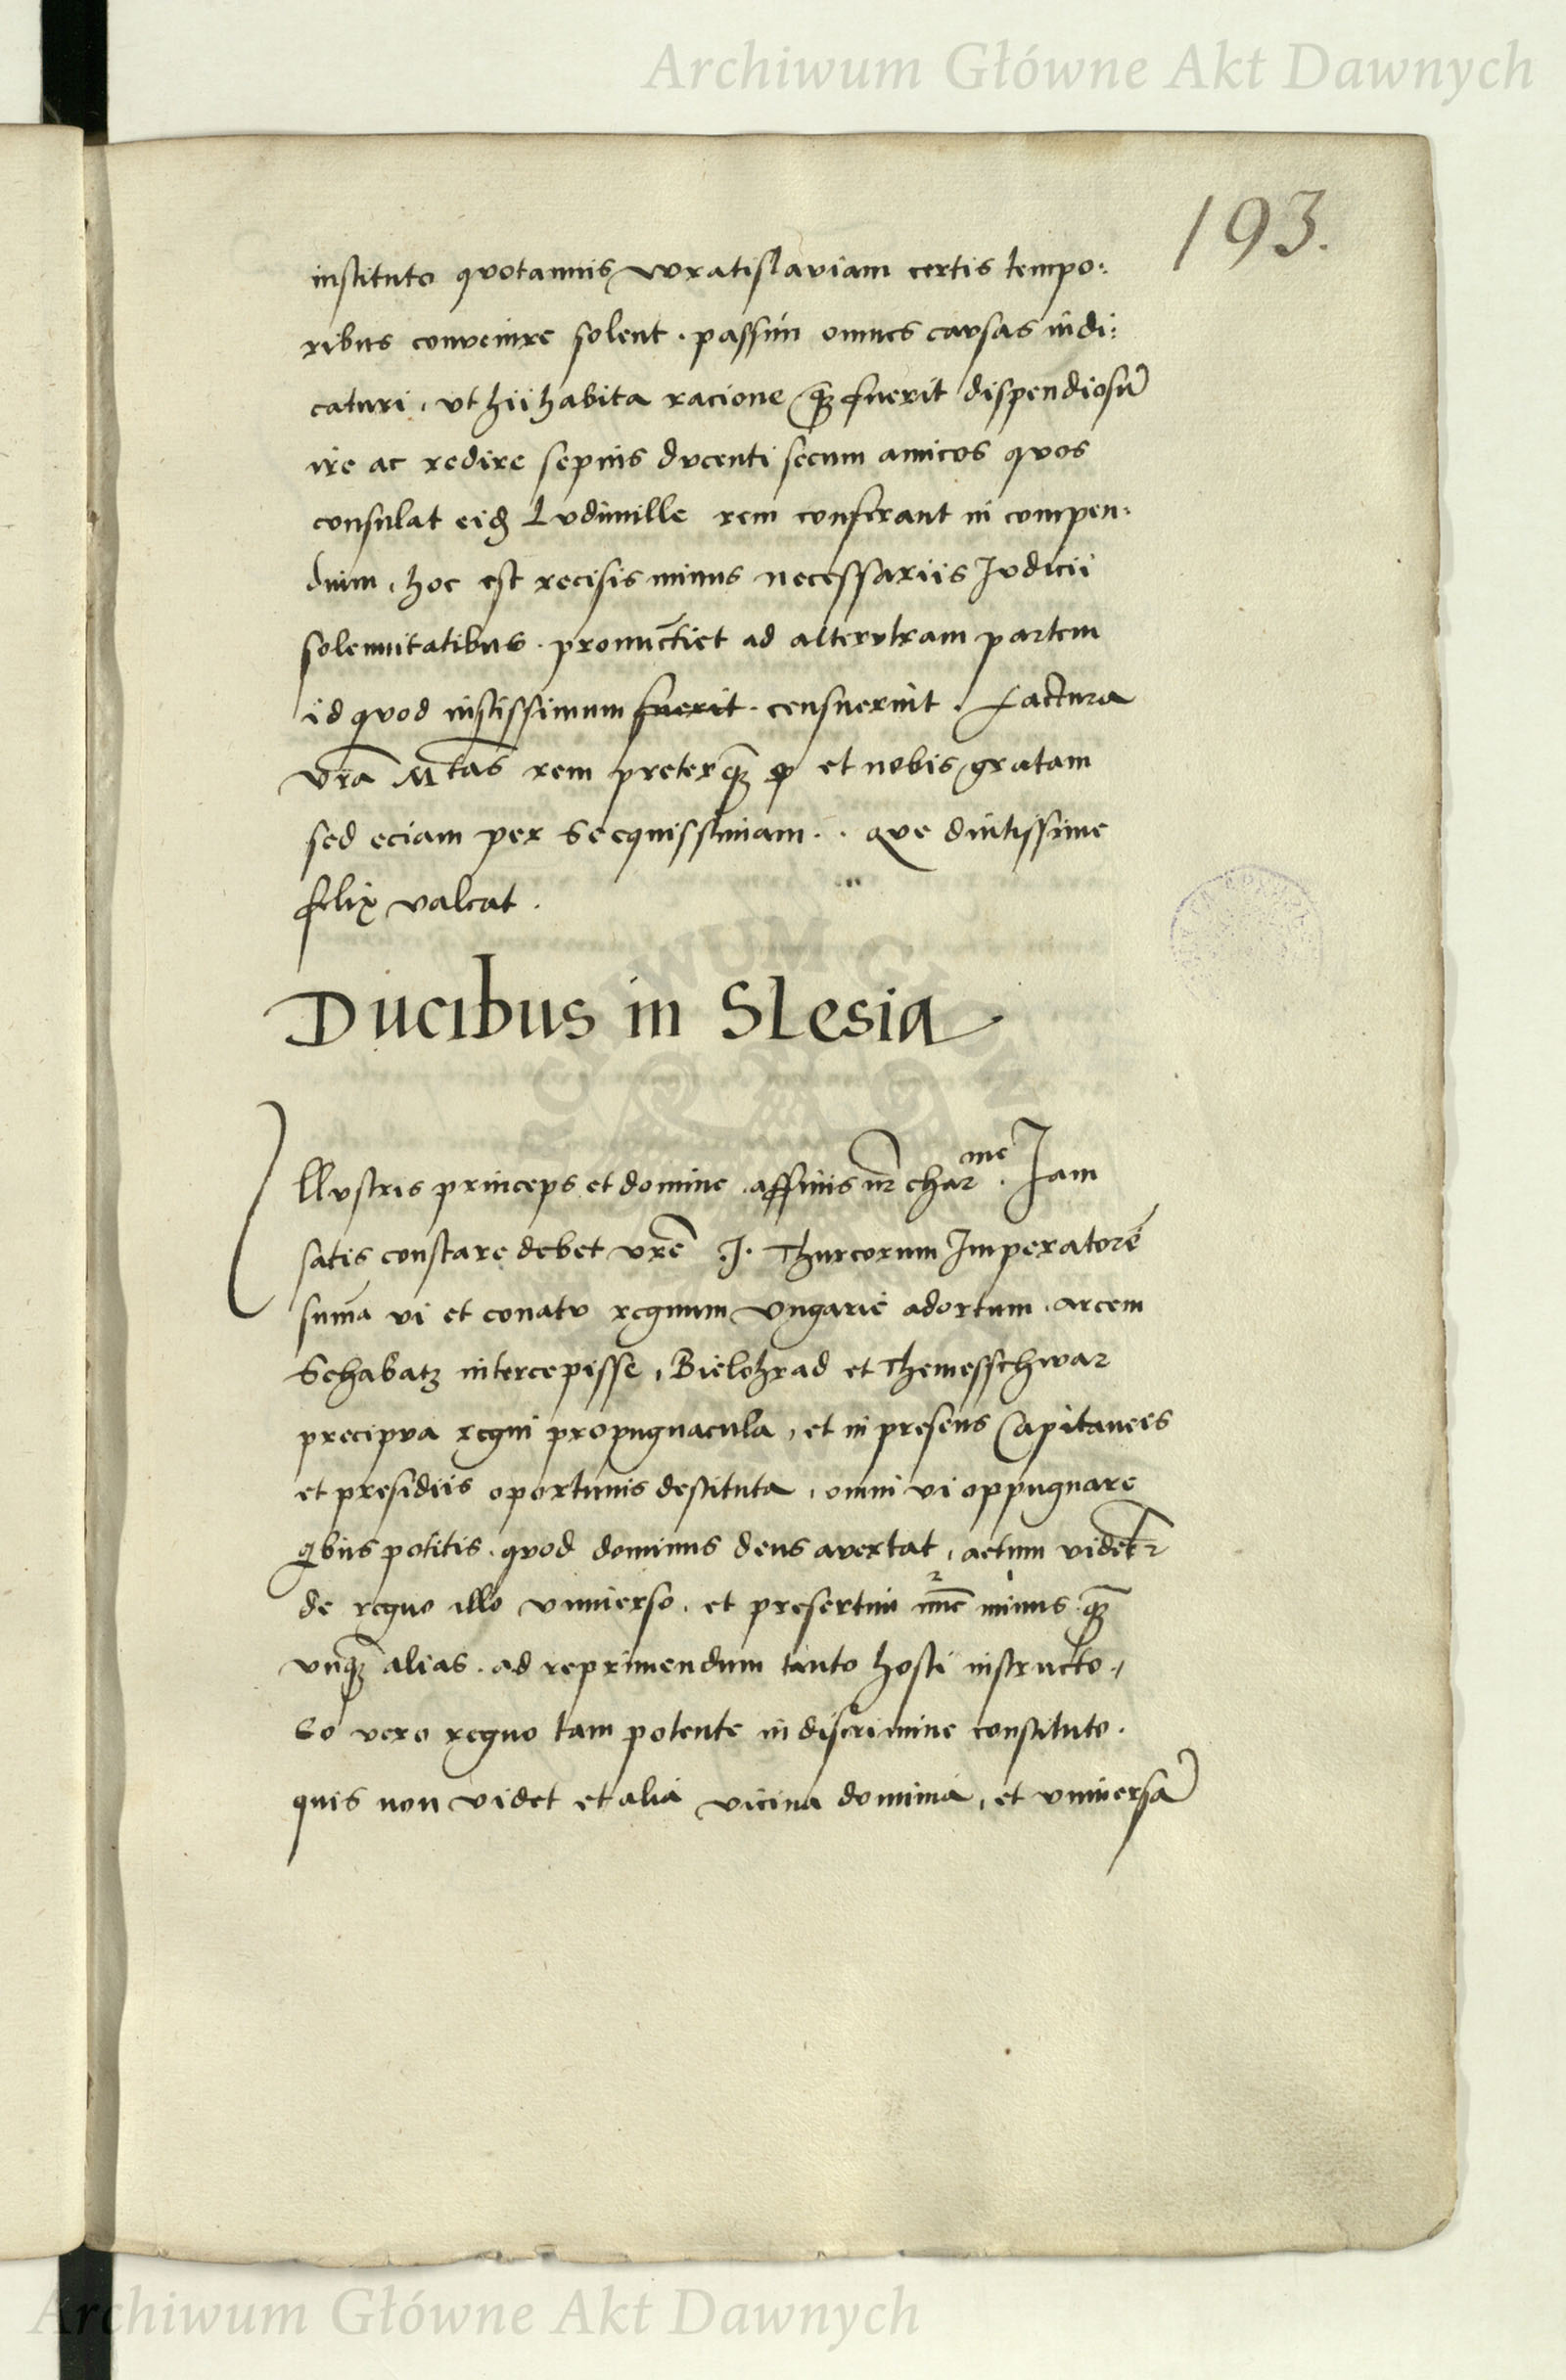 Archiwum Główne Akt Dawnych
193.
instituto qvotannis wratislaviam certis tempo:
ribus convenire solent . passim omnes cavsas iudi:
caturi, vt hii habita racione q̃ꝫ fuerit dispendiosũ
ire ac redire sepius dvcenti secum amicos qvos
consulat eidẽ Lvdimille rem conferant in compen:
dium, hoc est recisis minus necessariis Jvdicii
solennitatibus . pronuncṫiet ad altervtram partem
id qvod iustissimum fuerit . censuerint . Factura
vr̃a M̃tas rem preterq̃ꝫ ꝙ et nobis gratam
sed eciam per se equissimam . . qve diutissime
felix valeat .
Ducibus in Slesia
Illvstris princeps et domine affinis nr̃ charme . Jam
satis constare debet vrẽ .J. Thurcorum Imperatorẽ
sum̃a vi et conatv regnum vngarie adortum . arcem
Schabatz intercepisse, Bielohrad et Themesschwar
precipva regni propugnacula, et in presens Capitaneis
et presidiis oportunis destituta, omni vi oppugnare
qbus potitis . qvod dominus deus avertat, actum videtr
de regno illo vniuerso . et presertim nũc minus q̃ꝫ
vnq̃ꝫ alias . ad reprimendum tanto hosti instructo .
Eo vero regno tam potente in discrimine constituto .
quis non videt et alia vicina dominia, et vniuersã
Archiwum Główne Akt Dawnych